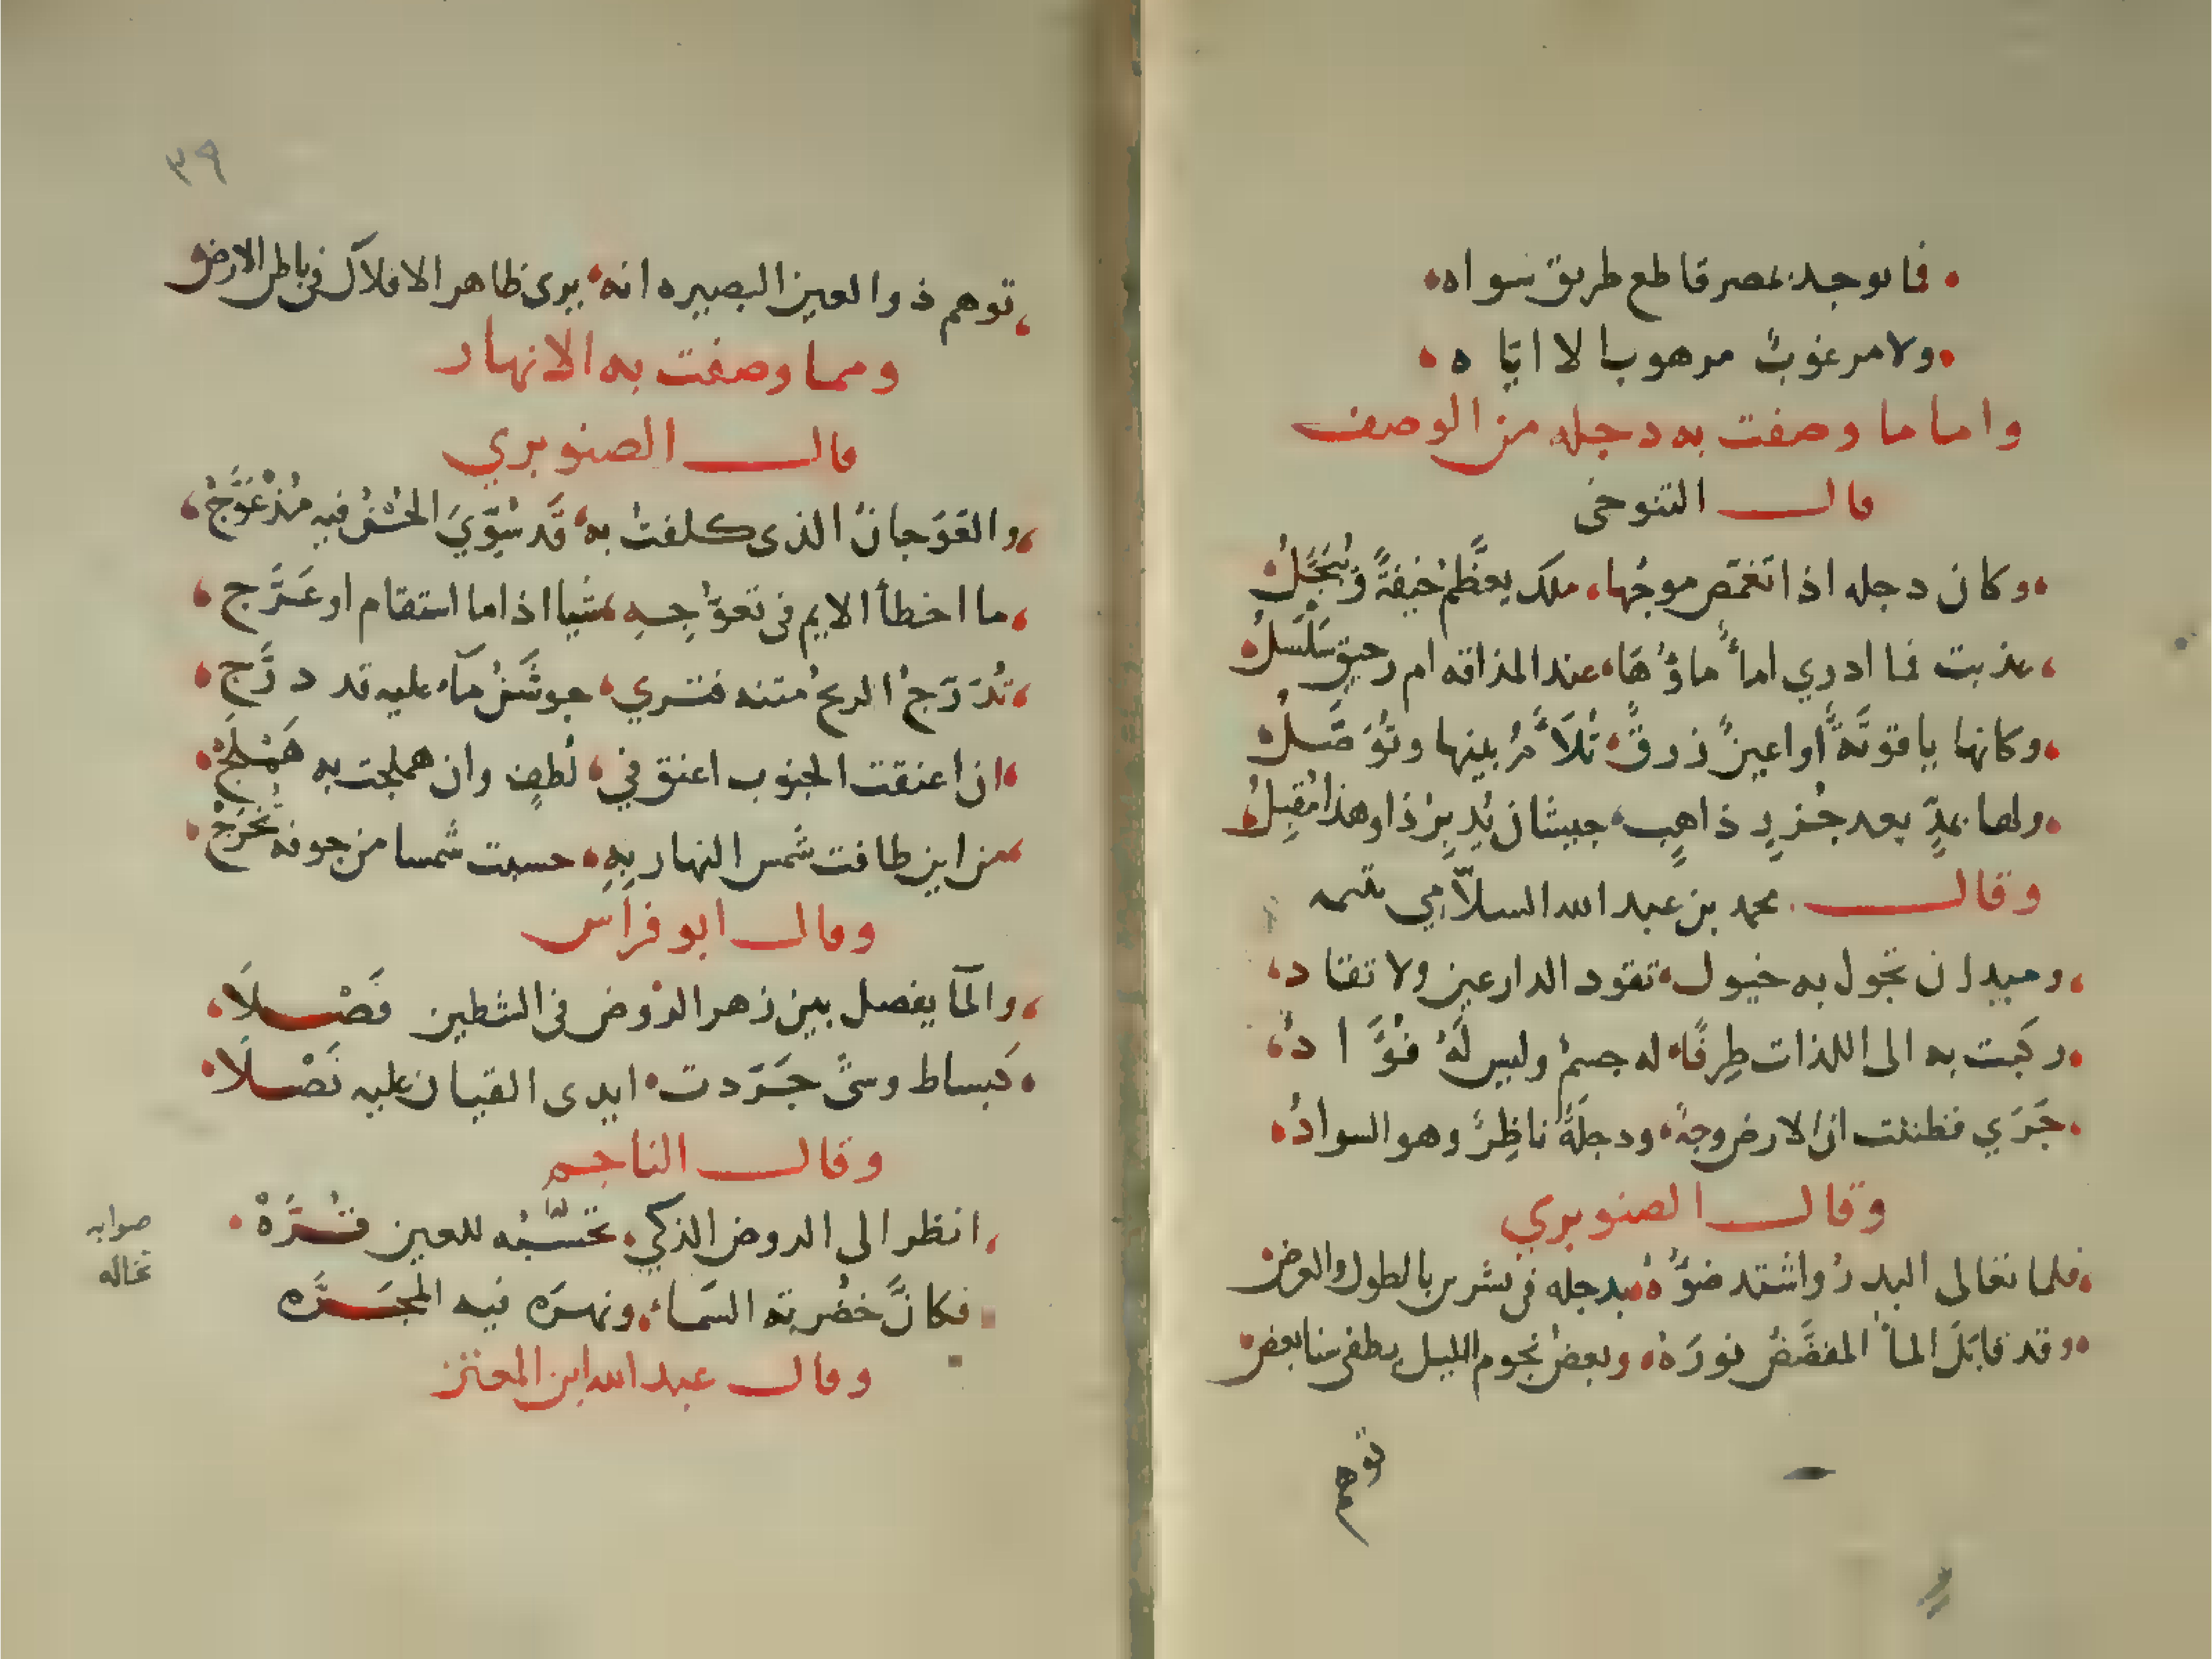 فما يوجد بمصر قاطع طريق سواه
ولا مرغوبٌ مرهوب الا اياه
واما ما وصفت به دجله من الوصف
قال التنوخي
وكان دجله اذا تغمّص موجُها ملك يعظَّم خيفةً ويُبَجَّلُ
عذبت فما ادري اماءٌ ماؤُها عند المذاقه ام رحيق سَلْسَلُ
وكانها ياقوتةٌ او اعينٌ زرقٌ تُلَاَّمُ بينها وتُوَصَّلُ
ولها بمدٍّ بعد جُزرٍ ذاهبٍ جيشان يُدبِرُ ذا وهذا مُقبِلُ
وقال محمد بن عبد الله السلّامي
وميدان تجول به خيول تقود الدارعين ولا تقاد
ركبت به الى اللذات طِرفًا له جسمٌ وليس لَهُ فُؤَادُ
جَرَي فظننت ان الارض وجهٌ ودجلةُ ناظِرٌ وهو السوادُ
وقال الصنوبري
فلما تعالى البدرُ واشتد ضوُّهُ بدجله في تشرين بالطول والعرض
وقد قابَلَ الماءُ المفضَّضُ نورَهُ وبعضُ نجوم الليل يطفي سنا بعض
توهم
٣٩
توهم ذو العين البصيره انه يرى ظاهر الافلاك في باطن الارض
ومما وصفت به الانهار
قال الصنوبري
والقوَجانُ الذى كلفتُ به قد سُوِّيَ الحُسْنُ فيه مُذْ عَوَّجْ
ما اخطأ الايم فى تعوّجِهِ مشيا اذا ما استقام او عَرَّج
تُدَرِّجُ الريحُ متنه فترى جوشَنُ مآء عليه قد درَّج
ان اعنقت الجنوب اعنق في لُطفٍ وان هملجت به هَمْلَجْ
من اين طافت شمس النهار بِهِ حسبت شمسا من جوفه تَخْرُجْ
وقال ابو فراس
والمآ يفصل بين زهر الرَّوض فى الشطين فَصْلَا
كَبساط وشىٍ جَرَدت ايدى القيان عليه نَصْلَا
وقال الناجم
انظر الى الروض الذكي تحسّبُه للعين قُرَّهْ
صوابه
تخاله
فكانَّ خضُرته السَماءُ ونهرَه فيه المجَرَّه
وقال عبد الله ابن المعتز